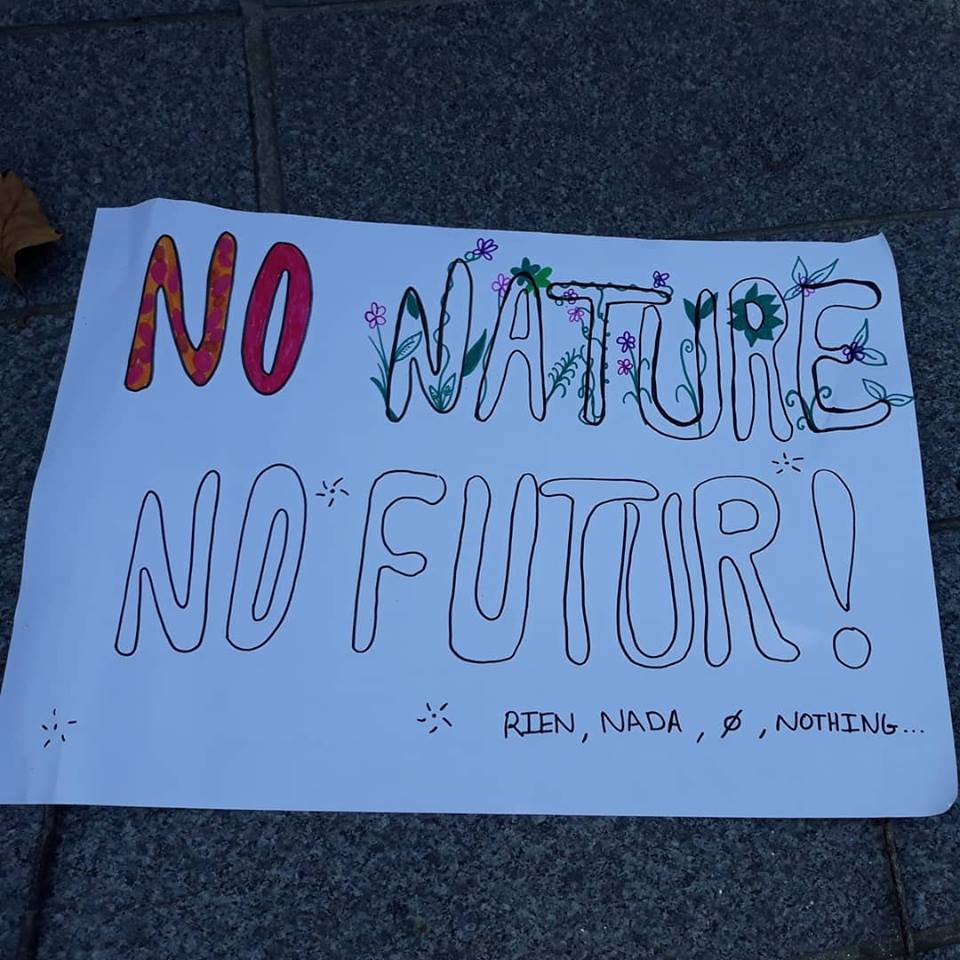 NO NATURE
NO FUTUR!
RIEN, NADA, Ø, NOTHING...